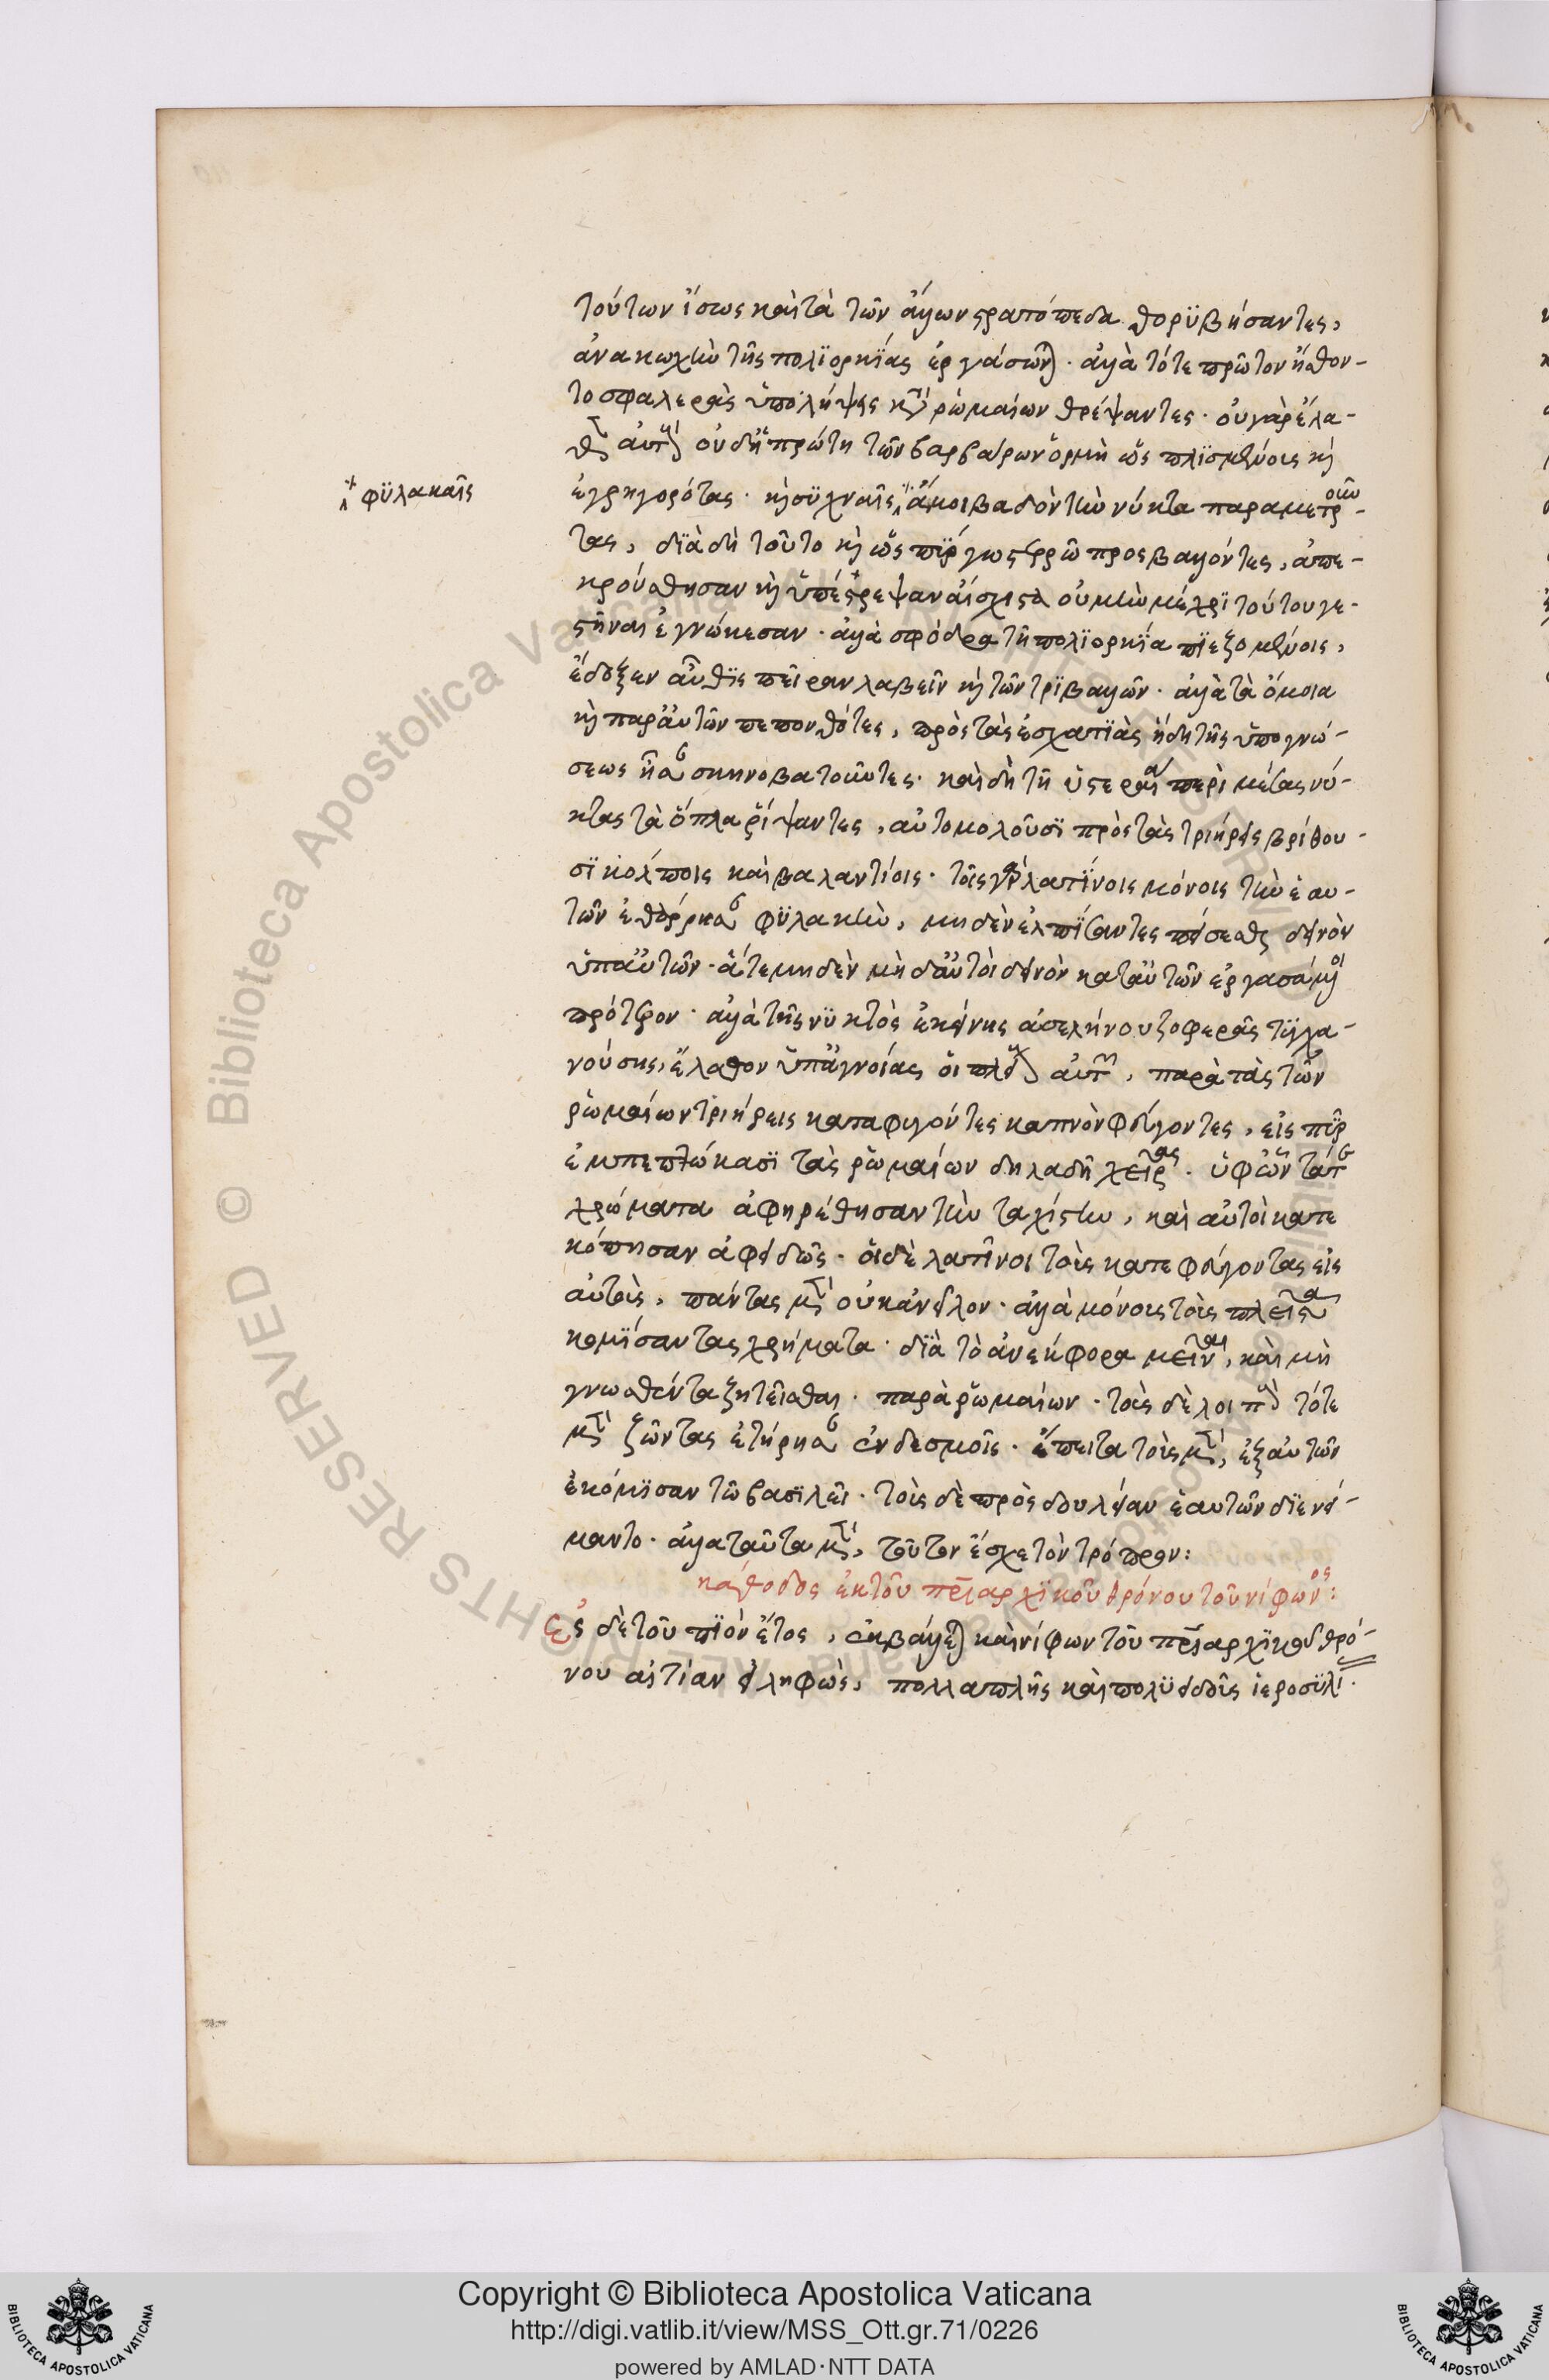 τούτων ἴσως καὶ τὰ τῶν ἄλλων στρατόπεδα θορϋβήσαντες,
ἀνακωχὴν τῆς πολϊορκΐας ἐργάσωνται. ἀλλὰ τότε πρῶτον ἤσθον-
το σφαλερὰς ὑπολήψεις κατὰ ῥωμαίων θρέψαντες. οὐ γὰρ ἔλα-
θεν αὐτοὺς οὐδ' ἡ πρώτη τῶν βαρβάρων ὁρμὴ ὡπλϊσμένους καὶ
+ φϋλακαῖς
ἐγρηγορότας. καὶ σϋχναῖς ἀμοιβαδὸν τὴν νύκτα παραμετροῦν-
τας, δϊὰ δὴ τοῦτο καὶ προσβαλόντες, ἀπε-
κρούσθησαν καὶ ὑπέστρεψαν αἴσχιστα οὐ μὴν μέχρϊ τούτου γε
στῆναι ἐγνώκεσαν. ἀλλὰ σφόδρα τῇ πολϊορκΐα πϊεζομένοις,
ἔδοξεν αὖθϊς πεῖραν λαβεῖν καὶ τῶν τρϊβαλλῶν. ἀλλὰ τὰ ὅμοια
καὶ παρ' αὐτῶν πεπονθότες, πρὸς τὰς ἐσχατϊὰς ἤδη τῆς ὑπογνώ-
σεως ἦσαν σκηνοβατοῦντες. καὶ δὴ τῇ ὑστεραίᾳ περὶ μέσας νύ-
κτας τὰ ὅπλα ῥίψαντες, αὐτομολοῦσϊ πρὸς τὰς τριήρεις βρίθου-
σϊ κόλποις καὶ βαλαντίοις. τοῖς γὰρ λατΐνοις μόνοις τὴν ἑαυ-
τῶν ἐθάρρησαν φϋλακὴν, μηδὲν ἐλπΐσαντες πείσεσθαι δεινὸν
ὑπ' αὐτῶν. ἅτε μηδὲν μηδ' αὐτοὶ δεινὸν κατ' αὐτῶν ἐργασάμενοι
πρότερον. ἀλλὰ τῆς νϋκτὸς ἐκείνης ἀσελήνου ζοφερᾶς τϋγχα-
νούσης, ἔλαθον ὑπ' ἀγνοίας οἱ πλείους αὐτῶν, παρὰ τὰς τῶν
ῥωμαίων τριήρεις καταφυγόντες καπνὸν φεύγοντες, εἰς πῦρ
ἐμπεπτώκασϊ τὰς ῥωμαίων δηλαδὴ χεῖρας. ὑφ' ὧν τά τε
χρώματα ἀφηρέθησαν τὴν ταχίστην, καὶ αὐτοὶ κατε
κόπησαν ἀφειδῶς. οἱ δὲ λατῖνοι τοὺς καταφεύγοντας εἰς
αὐτοὺς, πάντας μὲν οὐκ ἀνεῖλον. ἀλλὰ μόνους τοὺς πλεῖστα
κομΐσαντας χρήματα. δϊὰ τὸ ἀνεκφορα μεῖναι, καὶ μὴ
γνωσθέντα ζητεῖσθαι. παρὰ ῥωμαίων. τοὺς δὲ λοιποὺς τότε
μὲν ζῶντας ἐτήρησαν ἐν δεσμοῖς. ἔπειτα τοὺς μὲν, ἐξ αὐτῶν
ἐκόμϊσαν τῷ βασϊλεῖ. τοὺς δὲ πρὸς δουλείαν ἑαυτῶν δϊενεί-
μαντο. ἀλλὰ ταῦτα μὲν, τοῦτον ἔσχε τὸν τρόπον:
κάθοδος ἐκ τοῦ πατριαρχϊκοῦ θρόνου τοῦ νίφωνος:
Ἐς δὲ τοὐπϊὸν ἔτος, ἐκβάλλεται καὶ νίφων τοῦ πατριαρχϊκοῦ θρό-
νου αἰτίαν εἰληφὼς, πολλαπλῆς καὶ πολϋειδοῦς ἱεροσϋλί
Copyright © Biblioteca Apostolica Vaticana
http://digi.vatlib.it/view/MSS_Ott.gr.71/0226
powered by AMLAD·NTT DATA